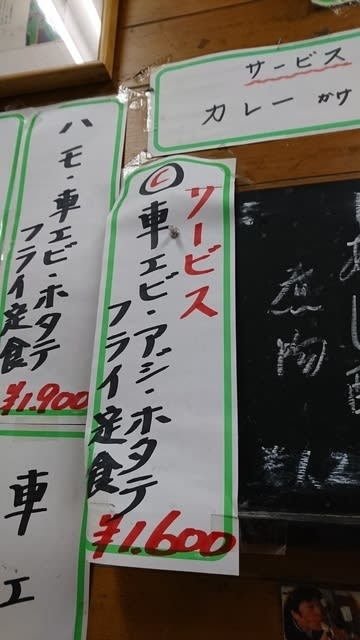 サービス
カレー かけ
ハモ・車エビ・ホタテ
フライ定食
¥1.900
C
サービス
車エビ・アジ・ホタテ
フライ定食
¥1.600
煮物
車エ